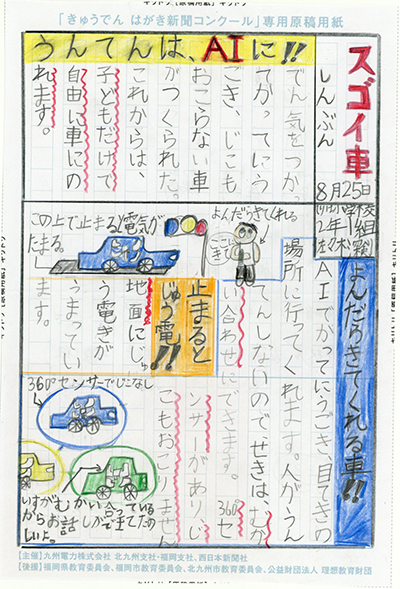 「きゅうでん はがき新聞コンクール」専用原稿用紙
スゴイ車
しんぶん
8月25日
学校
2年1組
うんてんは、AIに!!
でん気をつかっ
てかってにう
ごき、じこも
おこらない車
がつくられた。
これからは、
子どもだけで
自由に車にの
れます。
よんだらきてくれる車!!
AIでかってにうごき、目てきの
場所に行ってくれます。人がうん
てんしないのでせきは、むか
い合わせにできます。360°セ
ンサーがありじ
こもおこりません
よんだらきてくれる
ここにきて
止まると
じゅう電!!
地面にじゅ
う電きが
うまってい
ます。
この上で止まると電気が
たまる
360°センサーでじこなし
いすがむかい合っている
からお話しができてたの
しいよ。
【主催】九州電力株式会社 北九州支社・福岡支社、西日本新聞社
【後援】福岡県教育委員会、福岡市教育委員会、北九州市教育委員会、公益財団法人 理想教育財団